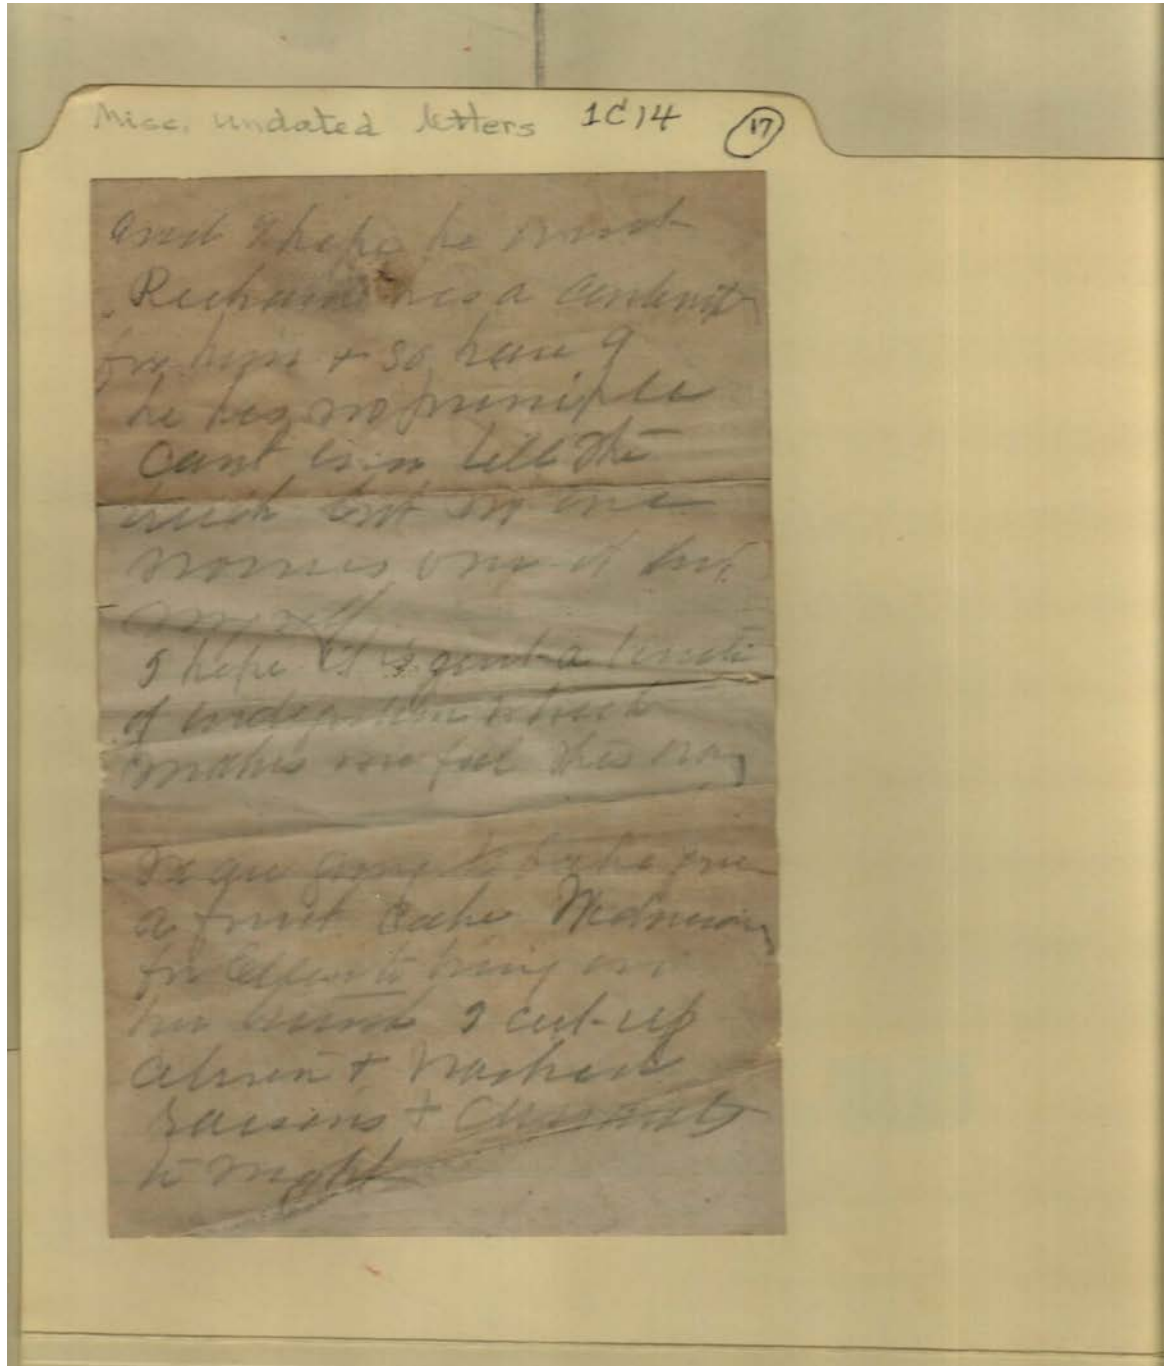 Misc. undated letters 1C14 17
and I hope he wont
Richard has a contempt
for him + so have I
he has no principle
Cant even tell the
truth but no one
worries over it but
myself
I hope it is quit a
of indigestion which
makes me feel this way
We are going to bake you
a fruit Cake Wednesday
for to bring in
her trunk I cut up
citron + washed
raisins + Currants
to night